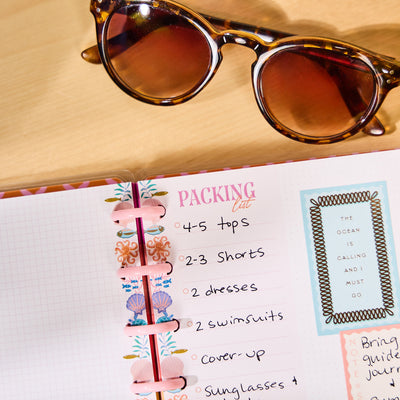 PACKING
list
4-5 tops
2-3 Shorts
2 dresses
2 swimsuits
cover-up
Sunglasses +
THE
OCEAN
IS
CALLING
AND I
MUST
GO
Bring
guide
journ
+